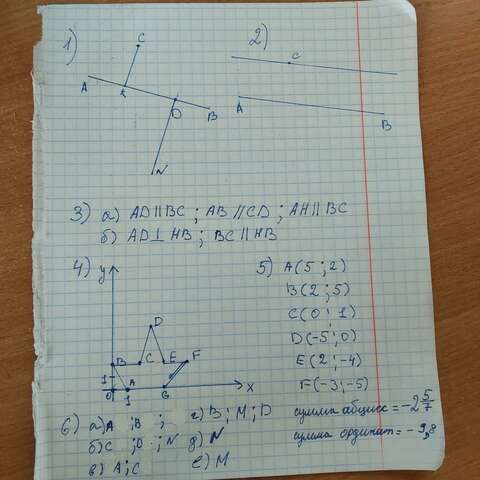 1)
C
A
K
D
B
N
2)
C
A
B
3) а) AD∥BC ; AB∥CD ; AH∥BC
б) AD⊥HB ; BC∥HB
4)
y
D
B C E F
1
0 1 A G x
5) A(5 ; 2)
B(2 ; 5)
C(0 ; 1)
D(-5 ; 0)
E(2 ; -4)
F(-3 ; -5)
сумма абцисс = -2 5/7
сумма ординат = - 9,8
6) а) A ; B ;
б) C ; D ; N
в) A ; C
г) B ; M ; D
д) N
е) M